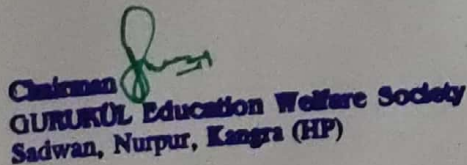 Chairman
GURUKUL Education Welfare Society
Sadwan, Nurpur, Kangra (HP)